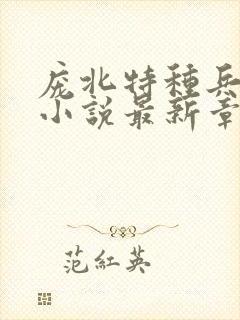 庞北特種兵
小說最新章
范紅英